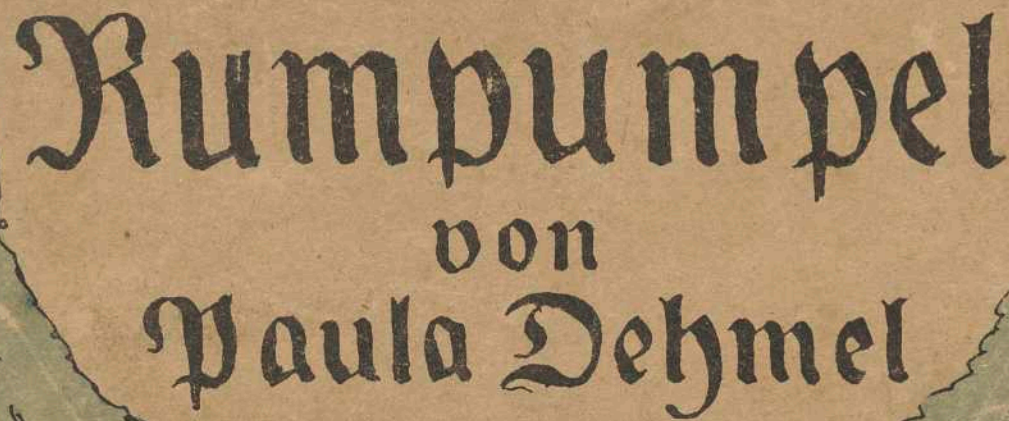 Rumpumpel
von
Paula Dehmel